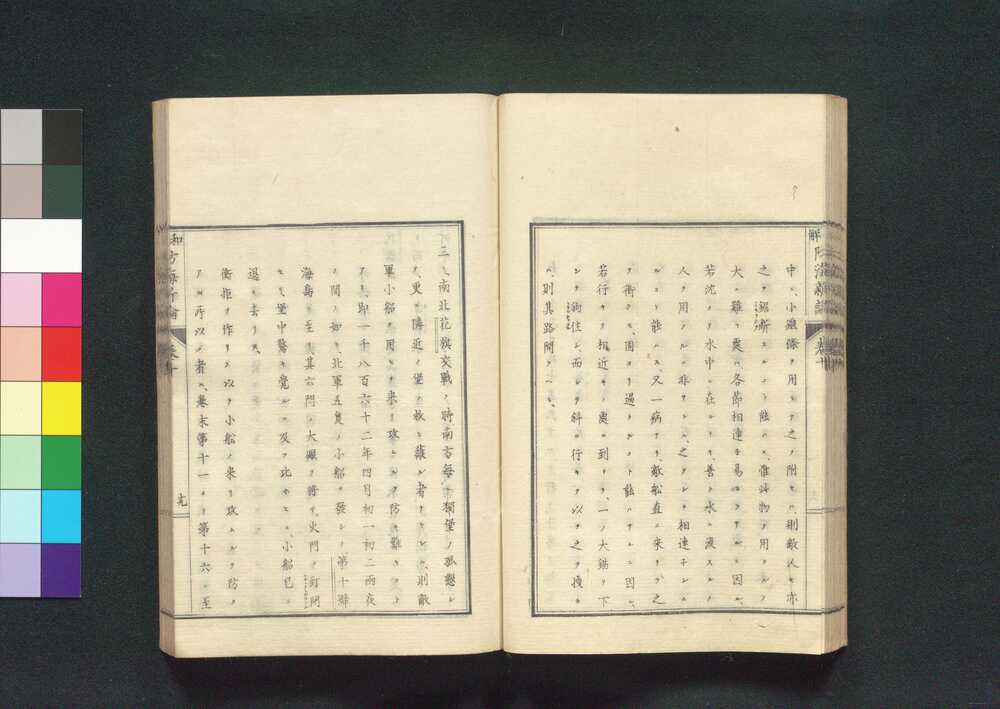 中ニ、小鐵條ヲ用ヒテ之ヲ附セバ、則敵人モ亦
之ヲ鋸斷スルコト能ハズ、惟此物ヲ用フルノ
大ニ難キ處ハ、各節相連ヲ易カラザルニ因ル、
若沈メテ水中ニ在レバ、善ク水ニ浸スルノ
人ヲ用フルニ非ザレバ、之ヲシテ相連ネシム
ルコト能ハズ、又一病アリ、敵船直ニ來リテ之
ヲ衝ケバ、固ク過ルコト能ハザルニ因ル、
若行キテ相近キノ處ニ到リ、一ノ大錨ヲ下
シテ鈎住シ、而シテ斜ニ行キ、以テ之ヲ挽
バ、則其路開クベシ、
三ハ南北花旗交戰ノ時、南方每ニ獨堡ノ孤懸シ
テ、更ニ隣近ノ堡ノ救ヒ護ル者ナケレバ、則敵
軍小船ヲ用ヒ來リ攻ムルヲ防ギ難キコト
アリ、即一千八百六十二年四月初一初二兩夜
ノ間ノ如キハ、北軍五隻ノ小船ヲ發シテ、第十號
海島ニ至リ、其六門ノ大礟ヲ將テ、火門ヲ釘閉
セリ、堡中驚キ覺ルニ及ブ比ホヒニ、小船已ニ
退キ去リタリ、
衝拒ヲ作リテ、以テ小船ノ來リ攻ムルヲ防グ
アル所以ノ者ハ、卷末第十一ヨリ第十六ニ至
十九